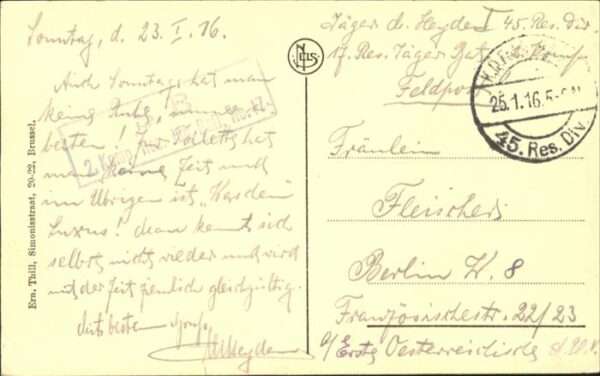 Sonntag, d. 23. I. 16.
Auch Sonntags hat man
keine Ruhe, immer
besten! Zur Toilette hat
man keine Zeit und
im Übrigen ist
Luxus! Man kennt sich
selbst nicht wieder und wird
mit der Zeit ziemlich gleichgültig.
besten
Heyden
2. Komp.
Ern. Thill, Simonisstraat, 20-22, Brussel.
NELS
Jäger d. Heyden I 45. Res. Div.
17. Res. Jäger Bat. Komp.
Feldpost
25.1.16.5-6
45. Res. Div.
Fräulein
Fleischer
Berlin W. 8
Französischestr. 22/23
Erste Oesterreichische